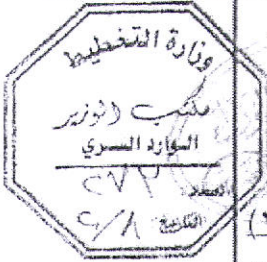 وزارة التخطيط
مكتب الوزير
الوارد السري
العدد ٢٧٢
التاريخ ٦/٨